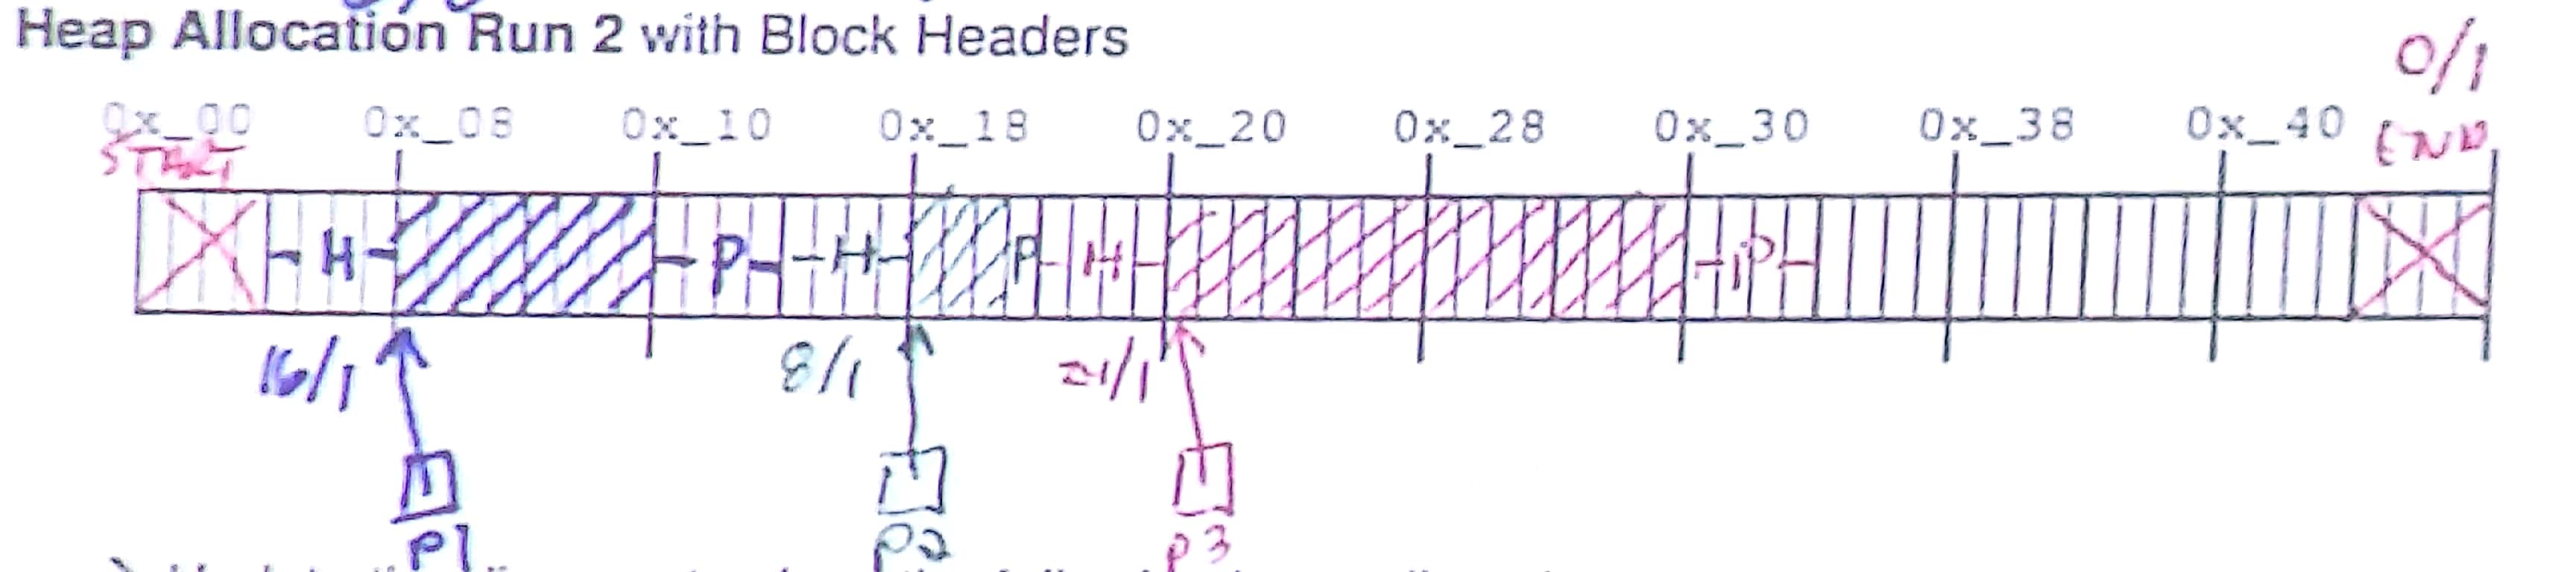 Heap Allocation Run 2 with Block Headers
0/1
0x_00 0x_08 0x_10 0x_18 0x_20 0x_28 0x_30 0x_38 0x_40 END
START
H P H P H P
16/1 8/1
P1 P2 P3